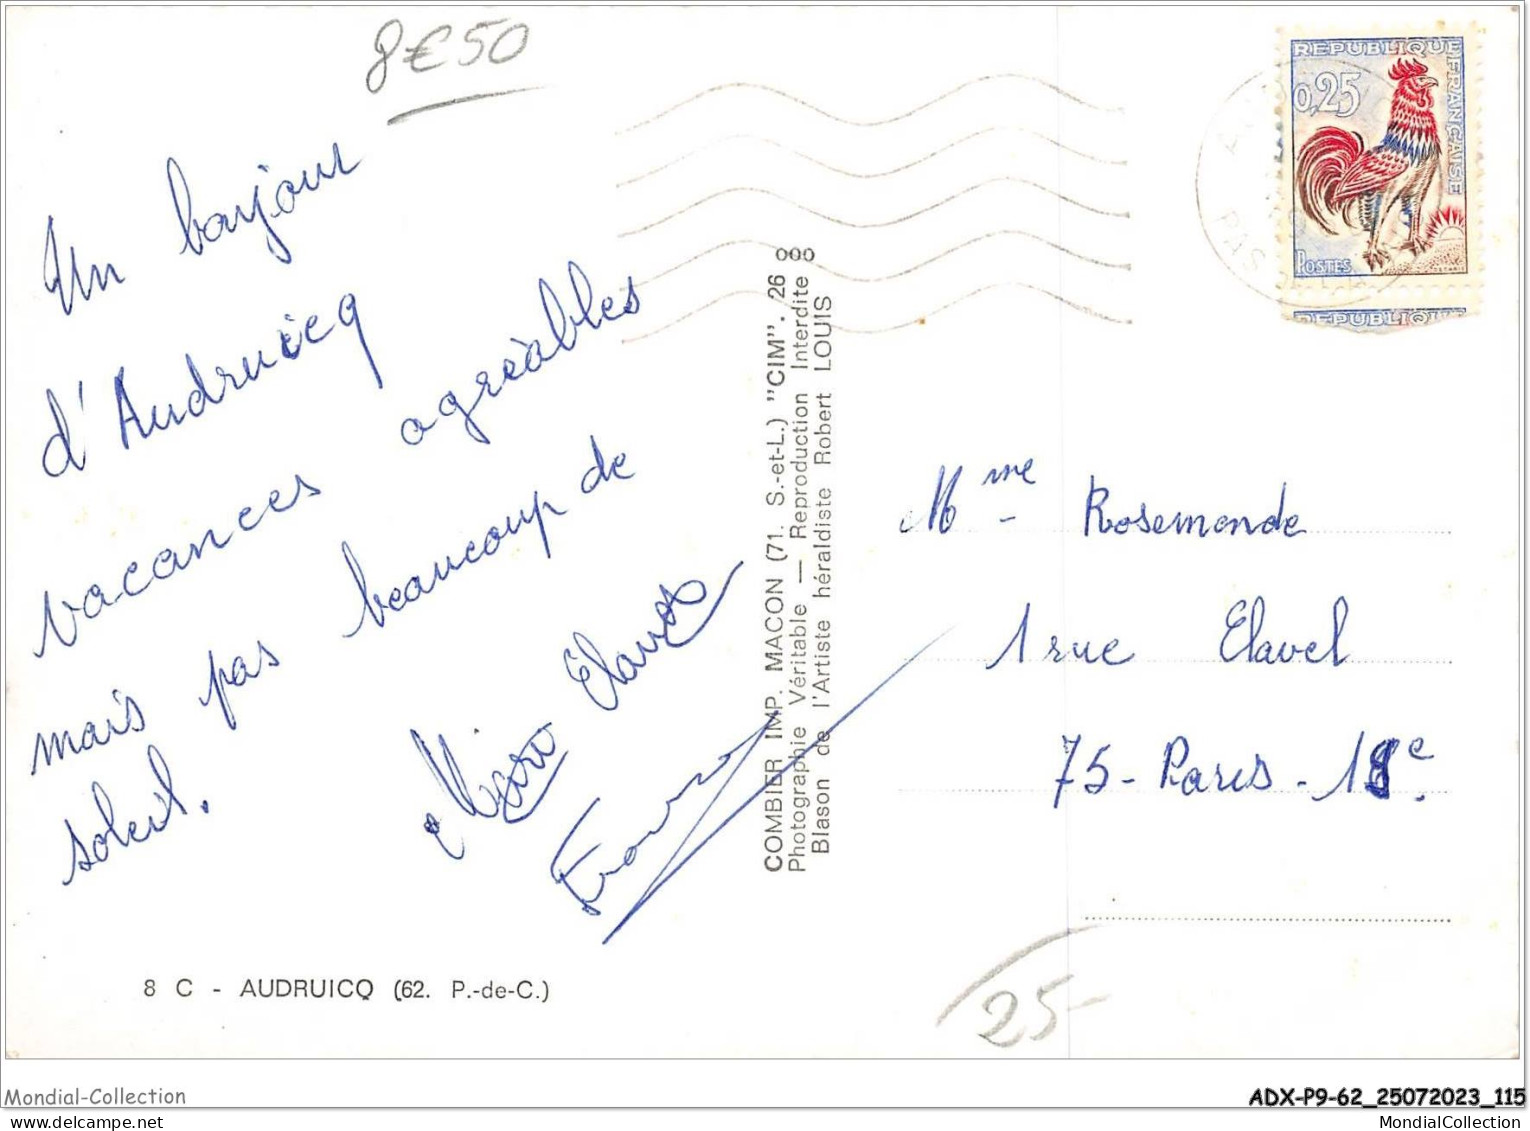 8€50
Un bonjour
d'Audruicq
vacances agréables
mais pas beaucoup de
soleil.
8 C - AUDRUICQ (62. P.-de-C.)
COMBIER IMP. MACON (71. S.-et-L.) "CIM". 26 ooo
Photographie Véritable — Reproduction Interdite
Blason de l'Artiste héraldiste Robert LOUIS
REPUBLIQUE FRANÇAISE
0,25
POSTES
REPUBLIQUE
PAS
Mme Rosemonde
1 rue Elavel
75 - Paris - 18e.
25-
Mondial-Collection
ADX-P9-62_25072023_115
mondial-collection.com
MondialCollection.com